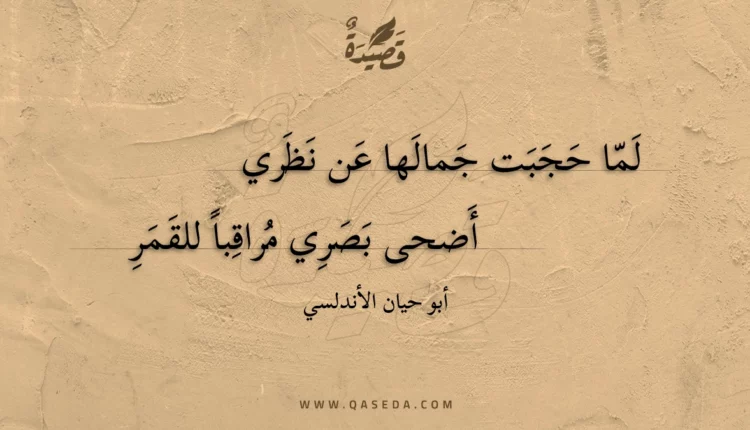 قَصِيدَةٌ
لَمّا حَجَبَت جَمالَها عَن نَظَري
أَضحى بَصَرِي مُراقِباً للقَمَرِ
أبو حيان الأندلسي
WWW.QASEDA.COM